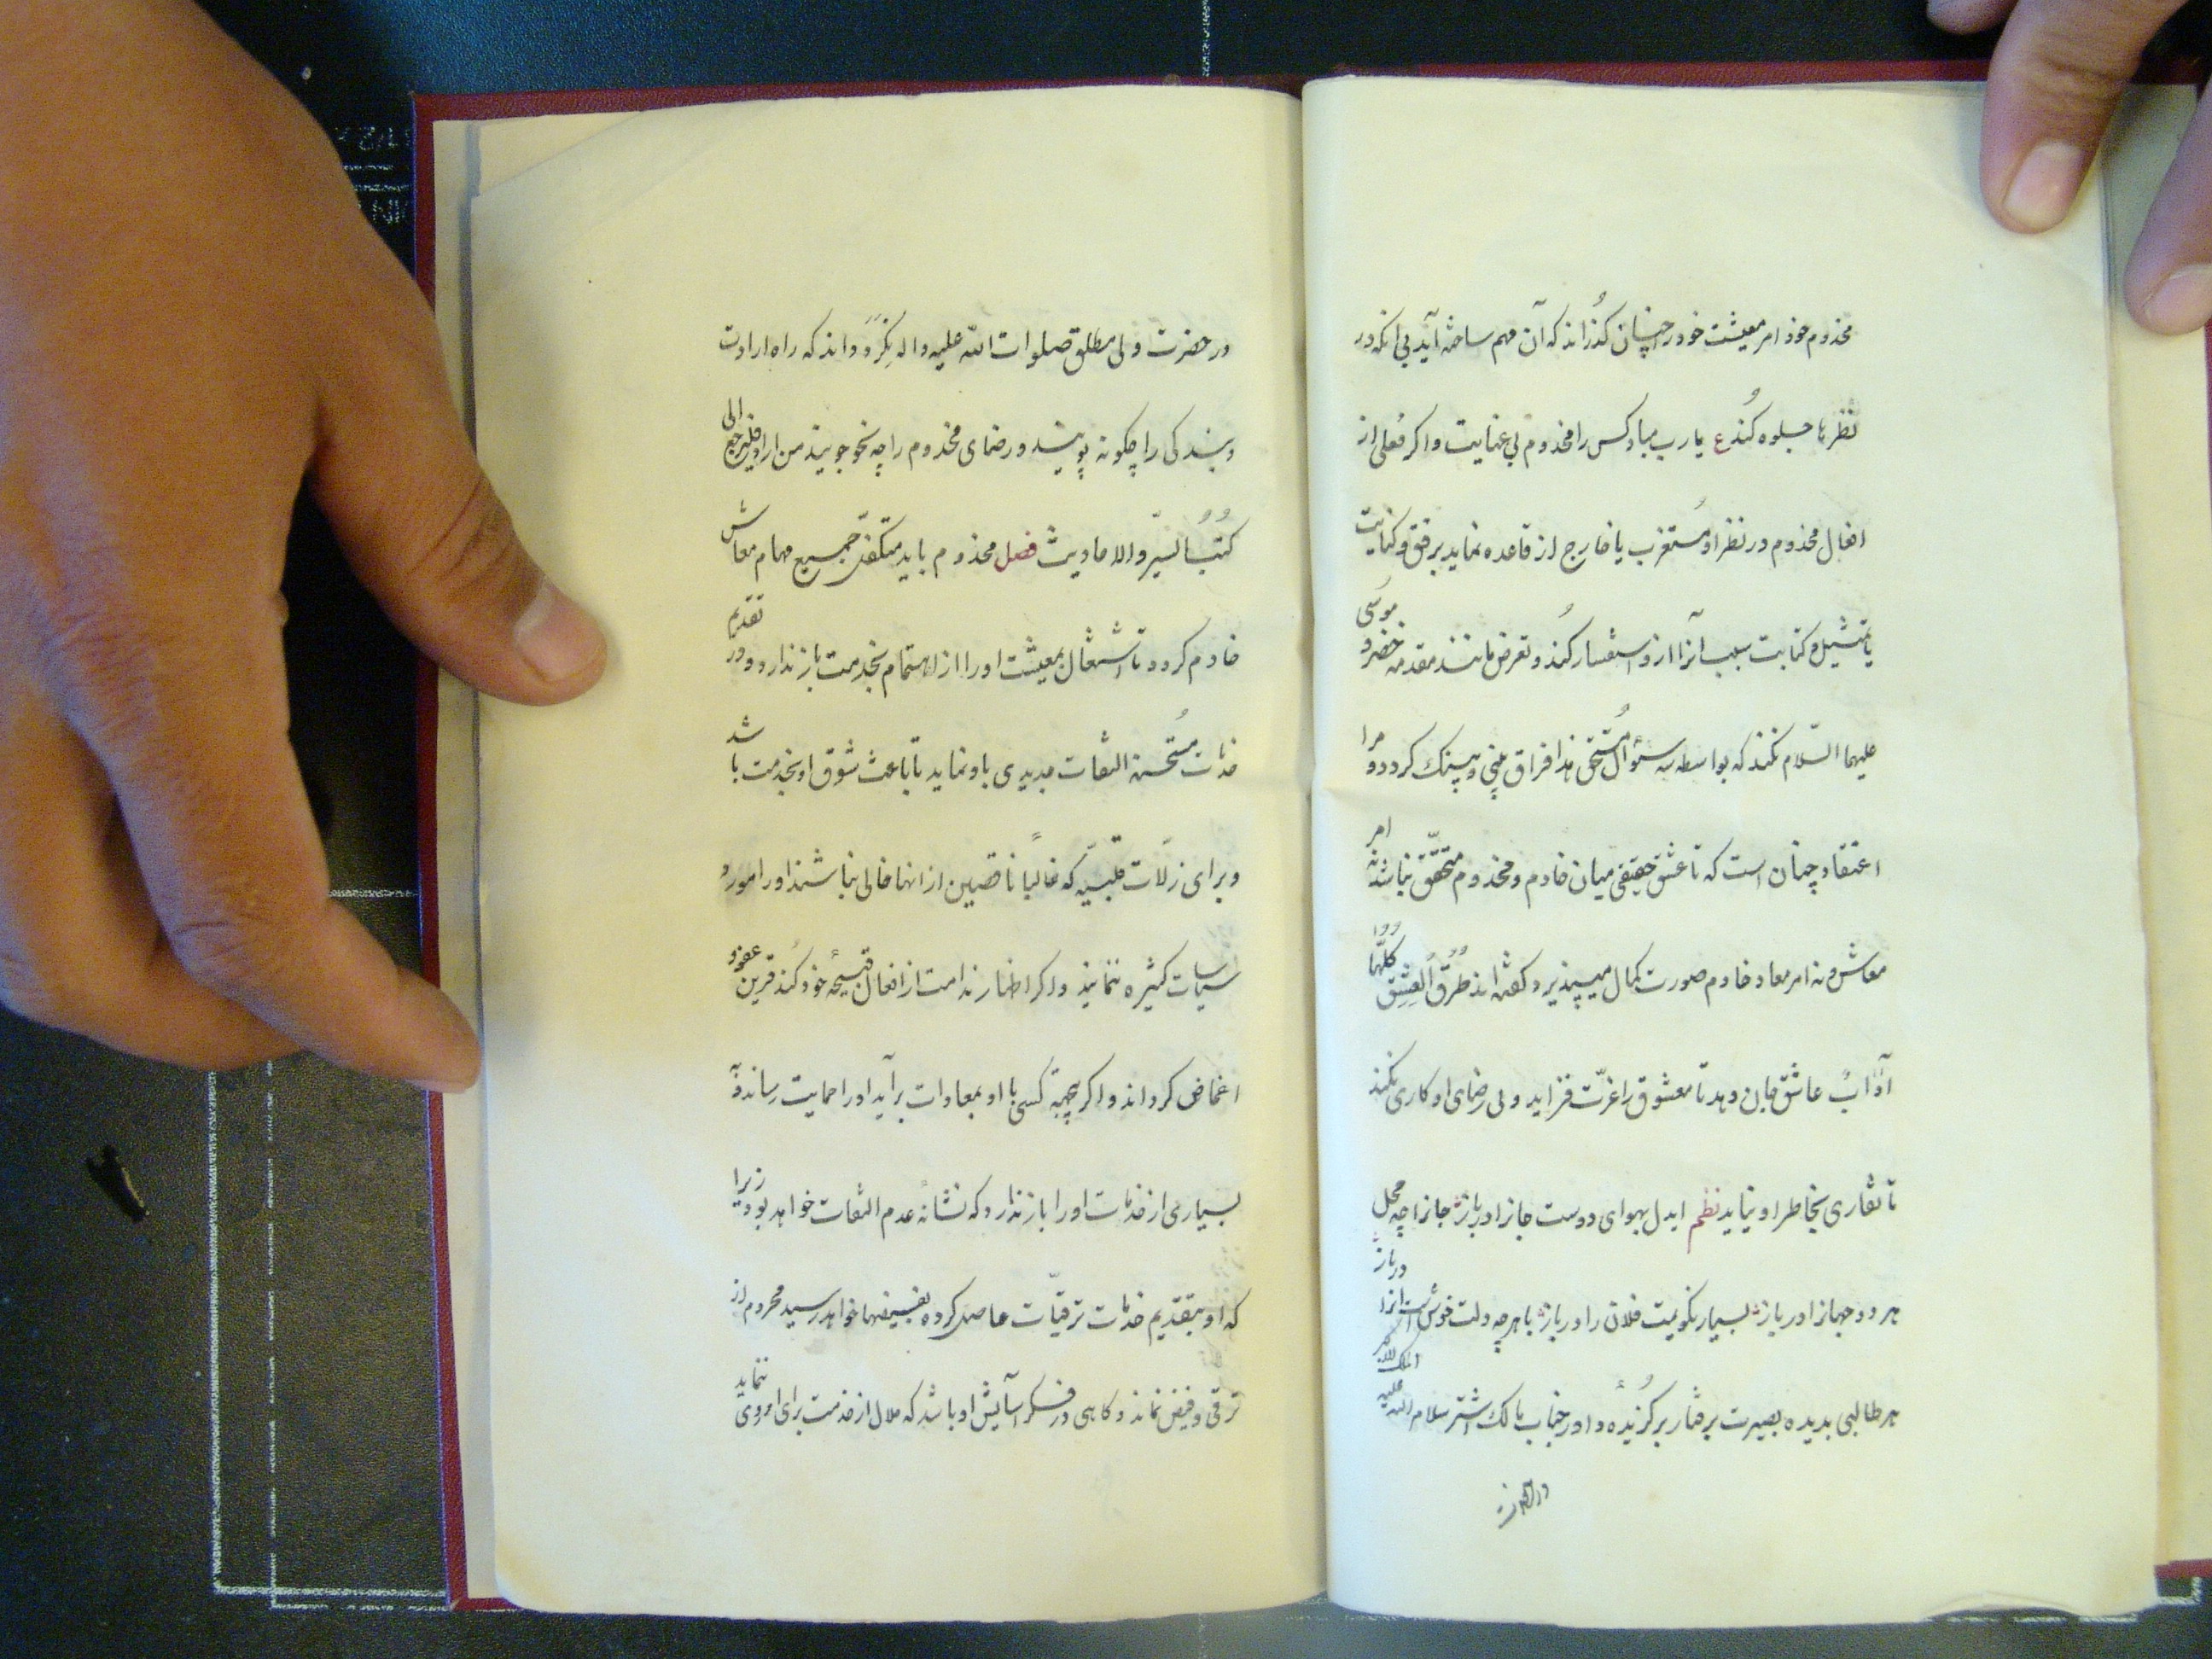 مخدوم خود امر معیشت خود را چنان گذراند که آن مهم ساخته آید بی آنکه در
نظرها جلوه کند ع یارب مباد کس را مخدوم بی عنایت و اگر فعلی از
افعال مخدوم در نظر او مستغرب یا خارج از قاعده نماید برفق و کنایت
یا تمثیل و کتابت سبب آنرا ازو استفسار کند و تعرض مانند مقدمه خضر و موسی
علیهما السّلام نکند که بواسطه سه سؤال مستحق هذا فراق بینی و بینک گردد و مرا
اعتقاد چنان است که تا عشق حقیقی میان خادم و مخدوم متحقّق نباشد نه امر
معاش و نه امر معاد خادم صورت کمال میپذیرد و گفته اند طُرُقُ العِشقِ کلّها
آدابُ عاشق جان دهد تا معشوق را عزّت فزاید و بی رضای او کاری نکند
تا نقاری بخاطر او نیاید نظم ایدل بهوای دوست جانرا درباز جانرا چه محل
هر دو جهانرا درباز بسیار نگویمت فلان را درباز با هرچه دلت خوش است آنرا درباز
هر طالبی بدیده بصیرت برفتار برگزیده دادار جناب مالک اشتر سلام الله علیه
در حضرت ولی مطلق صلوات الله علیه و اله نگرد و داند که راه ارادت
و بندگی را چگونه پویند و رضای مخدوم را چه نحو جویند من اراد فلیرجع الی
کُتُبُ السیَر و الاحادیث فصل مخدوم باید متکفّل جمیع مهام معاش
خادم گردد تا اشتغال بمعیشت او را از اهتمام بخدمت باز ندارد و در تقدیم
خدمات مُستحسنه التفات جدیدی باو نماید تا باعث شوق او بخدمت باشد
و برای زلّات قلیله که غالبًا ناقصین از آنها خالی نباشند او را مورد
سیاسات کثیره ننماید و اگر اظهار ندامت از افعال قبیحهٔ خود کند قرین عفو و
اغماض گرداند و اگر بیجهة کسی با او بمعادات برآید او را حمایت رساند و
بسیاری از خدمات او را باز ندارد که نشانهٔ عدم التفات خواهد بود زیرا
که او بتقدیم خدمات ترقیّات حاصل کرده بفیضها خواهد رسید محروم از
ترقی و فیض نماند و گاهی در فکر آسایش او باشد که ملال از خدمت برای او روی ننماید